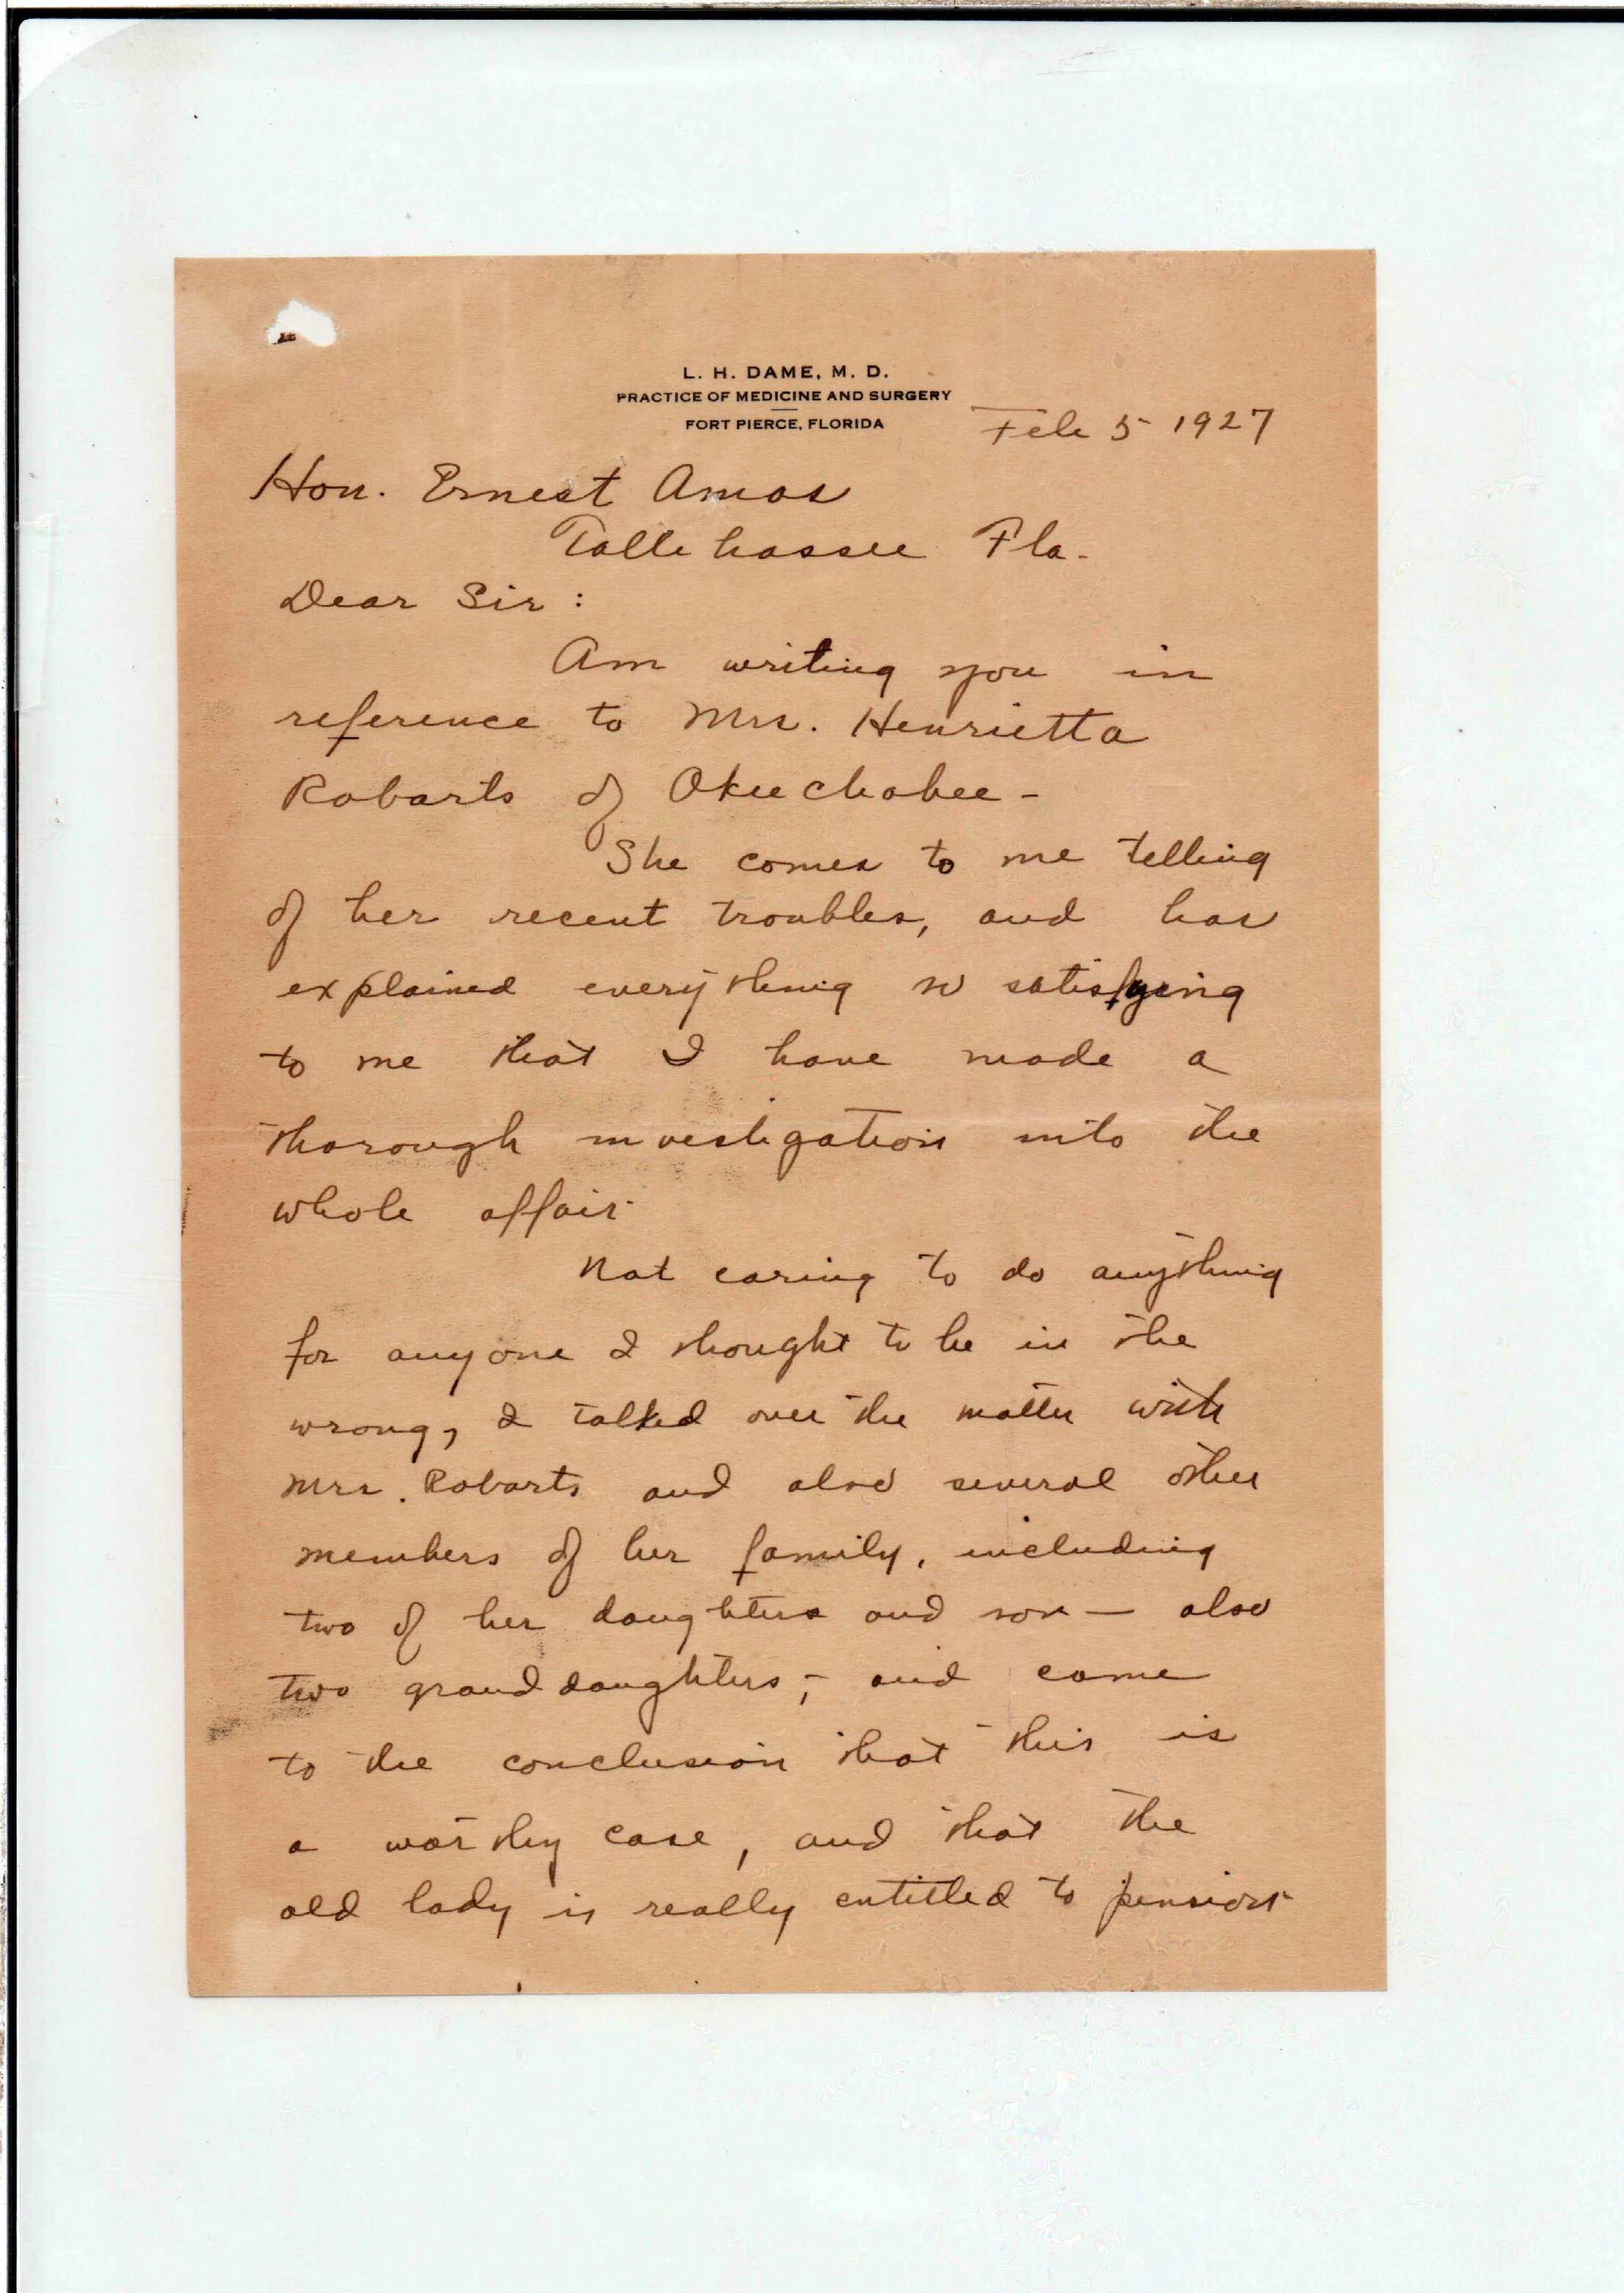 L. H. DAME, M. D.
PRACTICE OF MEDICINE AND SURGERY
FORT PIERCE, FLORIDA
Feb 5 1927
Hon. Ernest Amos
Tallehassee Fla.
Dear Sir :
Am writing you in
reference to Mrs. Henrietta
Robarts of Okeechobee -
She comes to me telling
of her recent troubles, and has
explained everything so satisfying
to me that I have made a
thorough investigation into the
whole affair.
Not caring to do anything
for anyone I thought to be in the
wrong, I talked over the matter with
Mrs. Robarts and also several other
members of her family, including
two of her daughters and son — also
two granddaughters, - and came
to the conclusion that this is
a worthy case, and that the
old lady is really entitled to pension